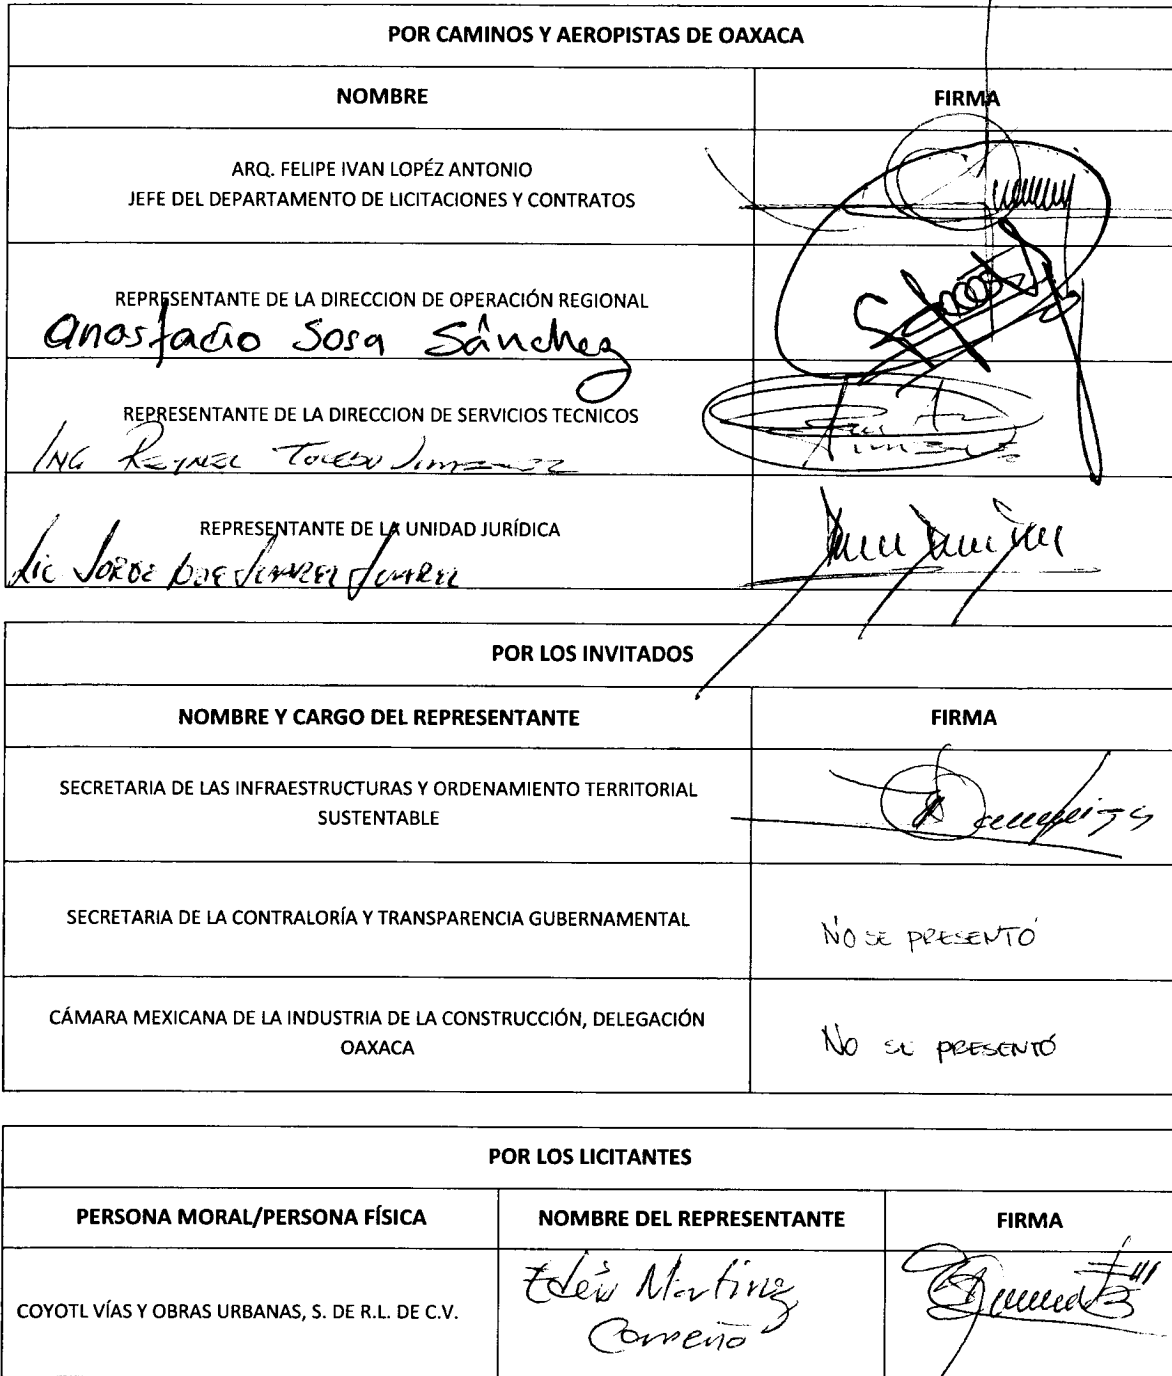 POR CAMINOS Y AEROPISTAS DE OAXACA
NOMBRE
FIRMA
ARQ. FELIPE IVAN LOPÉZ ANTONIO
JEFE DEL DEPARTAMENTO DE LICITACIONES Y CONTRATOS
REPRESENTANTE DE LA DIRECCION DE OPERACIÓN REGIONAL
Anastacio Sosa Sánchez
REPRESENTANTE DE LA DIRECCION DE SERVICIOS TECNICOS
ING REYNEL TOLEDO JIMENEZ
REPRESENTANTE DE LA UNIDAD JURÍDICA
Lic JORGE JUAREZ
POR LOS INVITADOS
NOMBRE Y CARGO DEL REPRESENTANTE
FIRMA
SECRETARIA DE LAS INFRAESTRUCTURAS Y ORDENAMIENTO TERRITORIAL
SUSTENTABLE
SECRETARIA DE LA CONTRALORÍA Y TRANSPARENCIA GUBERNAMENTAL
NO SE PRESENTÓ
CÁMARA MEXICANA DE LA INDUSTRIA DE LA CONSTRUCCIÓN, DELEGACIÓN
OAXACA
NO SE PRESENTÓ
POR LOS LICITANTES
PERSONA MORAL/PERSONA FÍSICA
NOMBRE DEL REPRESENTANTE
FIRMA
COYOTL VÍAS Y OBRAS URBANAS, S. DE R.L. DE C.V.
Edén Martínez
Carreño